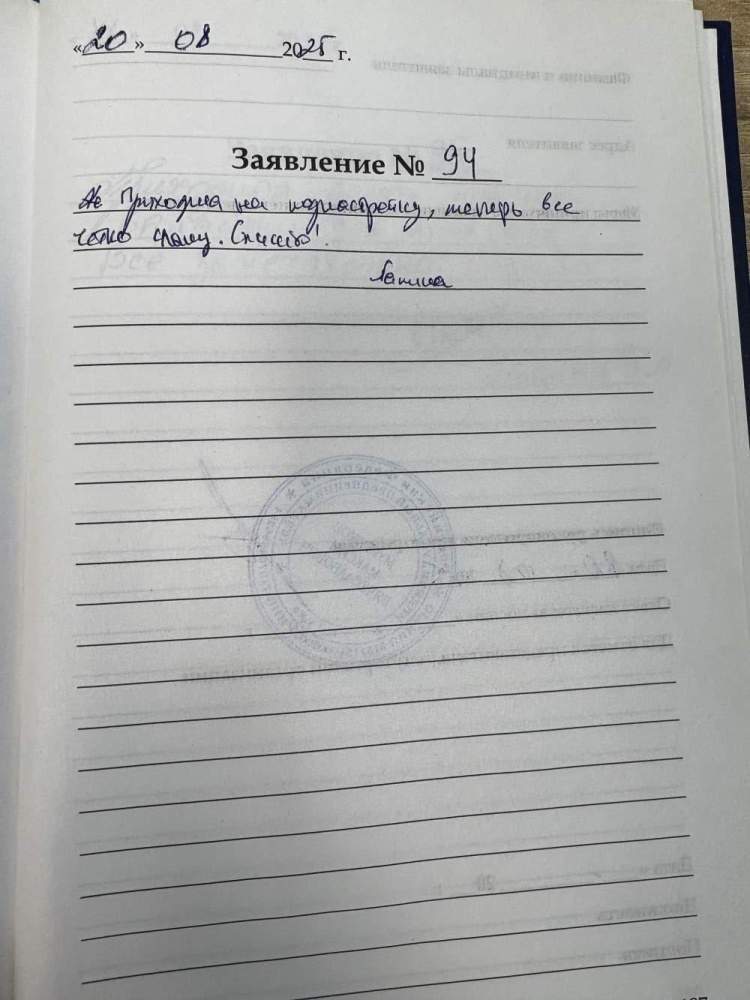 «20» 08 2025 г.
Заявление № 94
Приходила на поднастройку, теперь все
четко слышу. Спасибо!